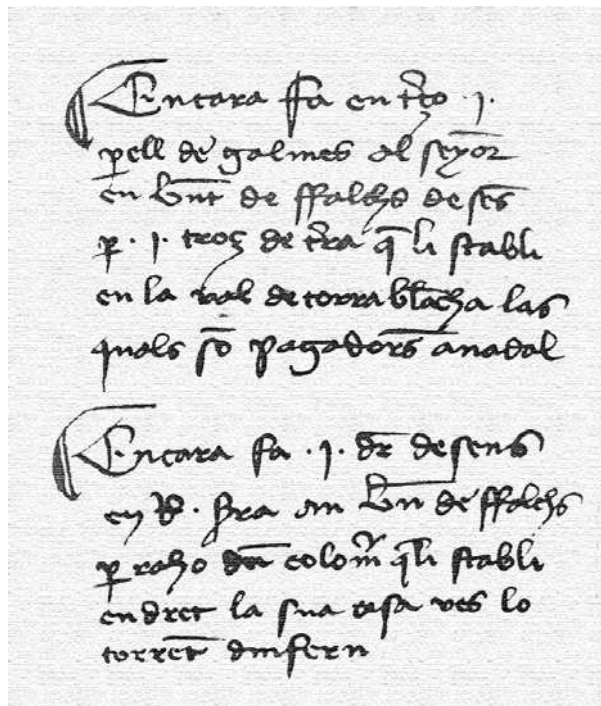 Encara fa en t̃ço · j ·
p̱ell de galines al seyor̃
en bñt de ffalchs de sẽs
p̱ · j · troç de t̃ra q̃ li stabli
en la val de torra blãcha las
quals sõ pagadors̃ a nadal
Encara fa · j · dr̃ de sens
en P̃ · ſr̃a an bñ de ffalchs
p̱ raho colom̃ q̃ li stabli
en dret la sua casa ves lo
torrẽt dinfern